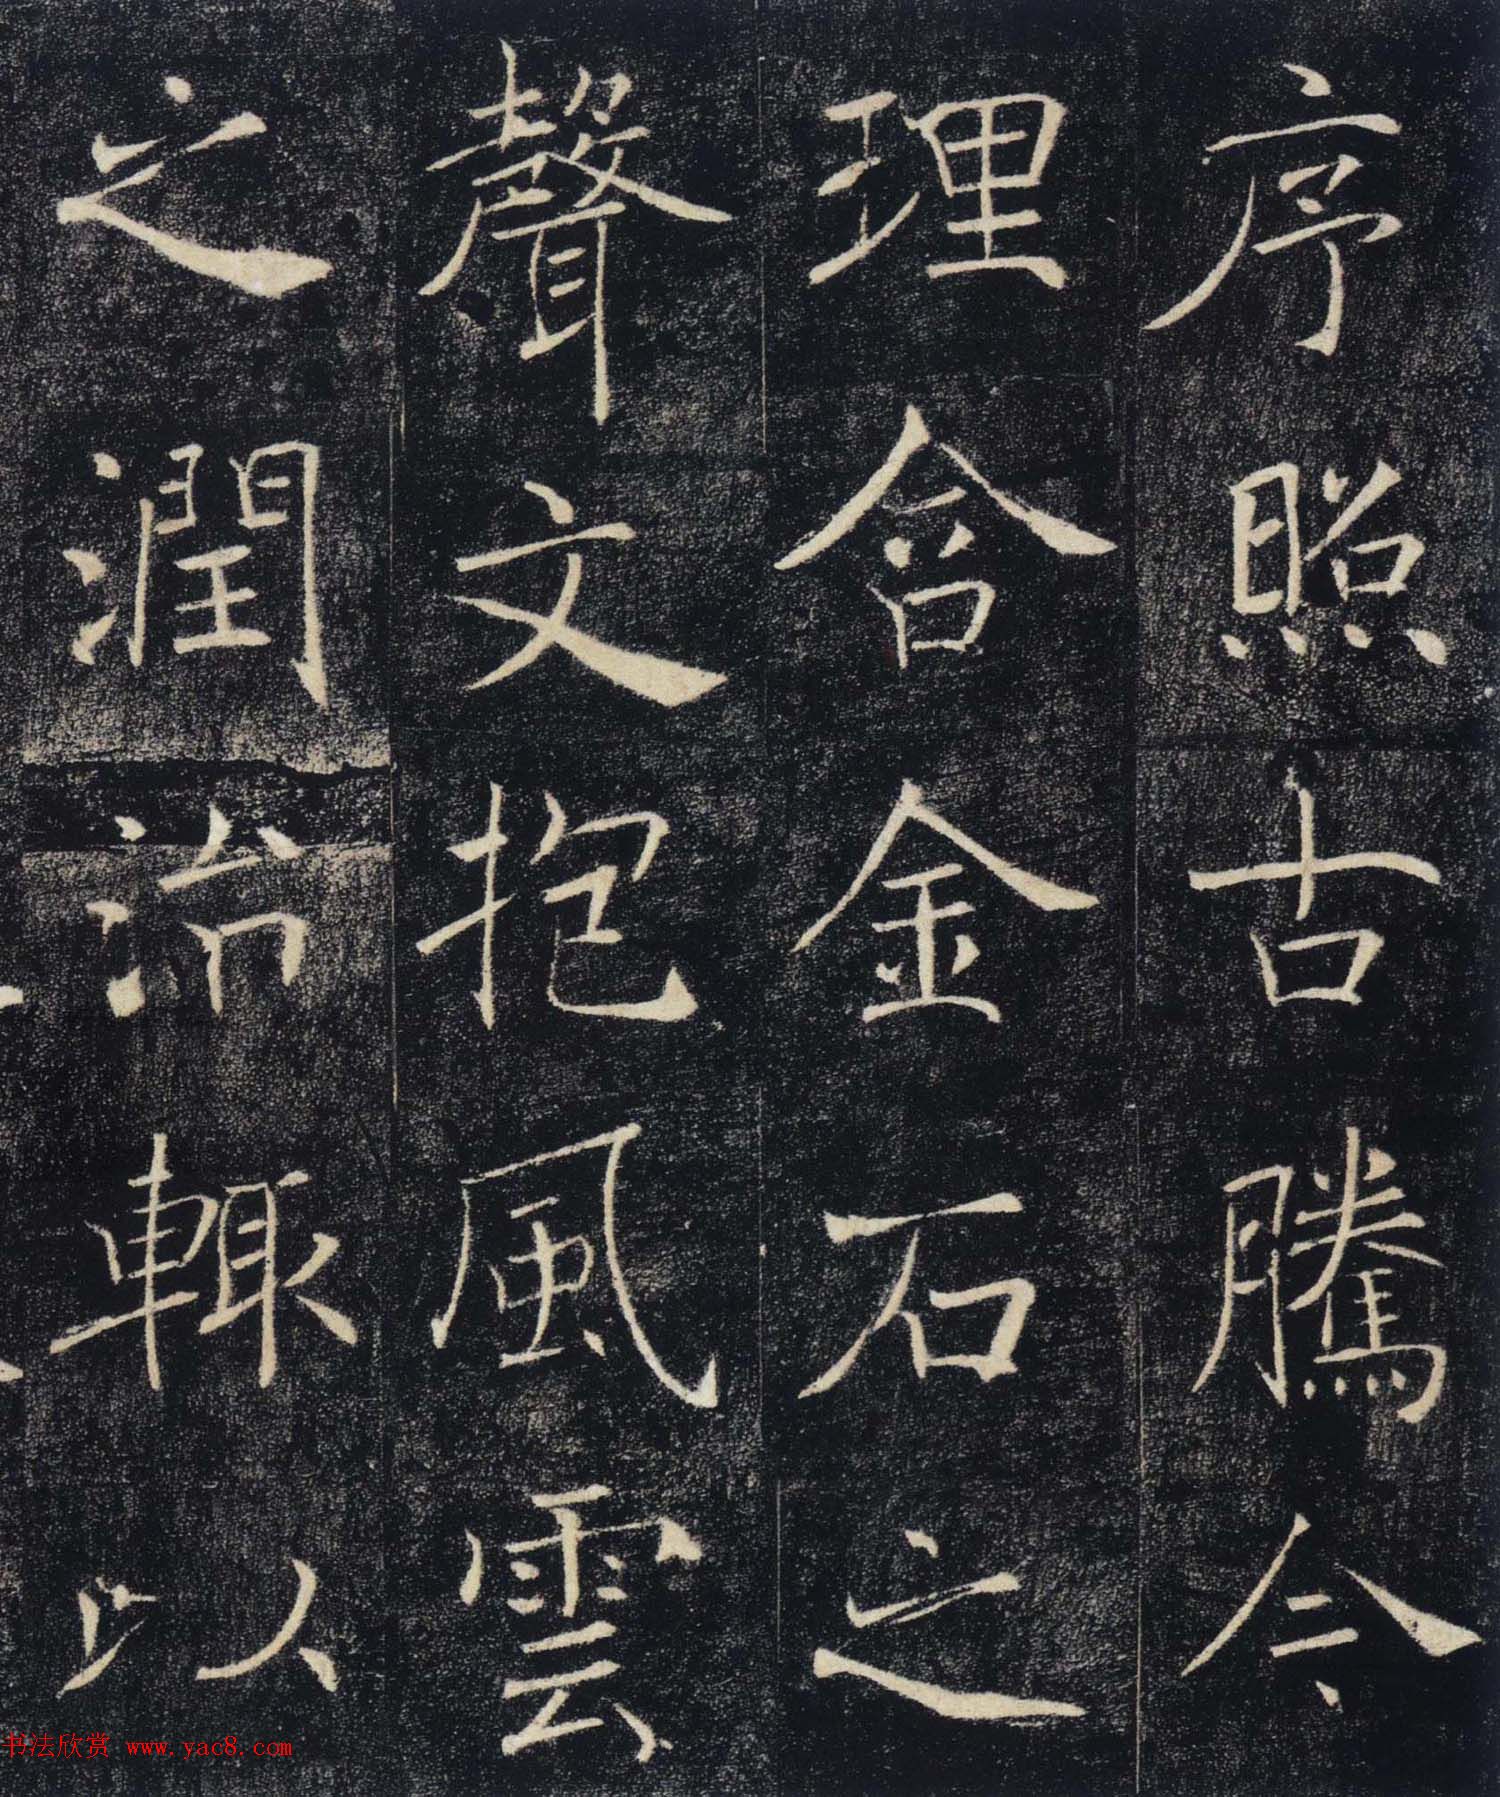 序照古騰今
理含金石之
聲文抱風雲
之潤治輒以
书法欣赏 www.yac8.com